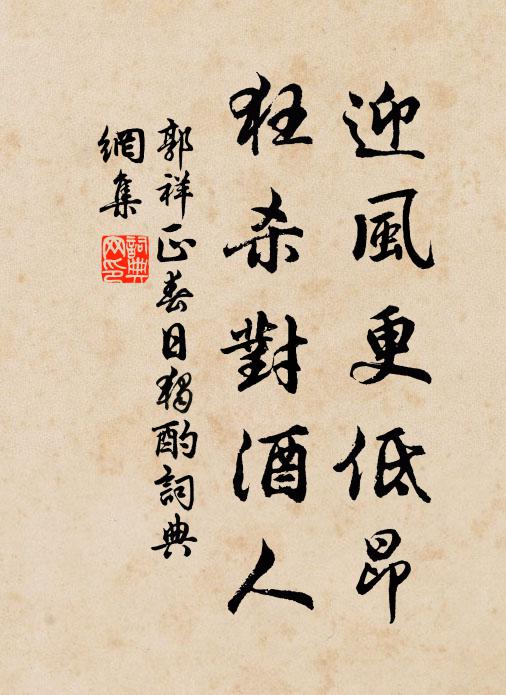 迎風更低昂
狂杀對酒人
郭祥正春日獨酌詞典
網集
詞典
网印